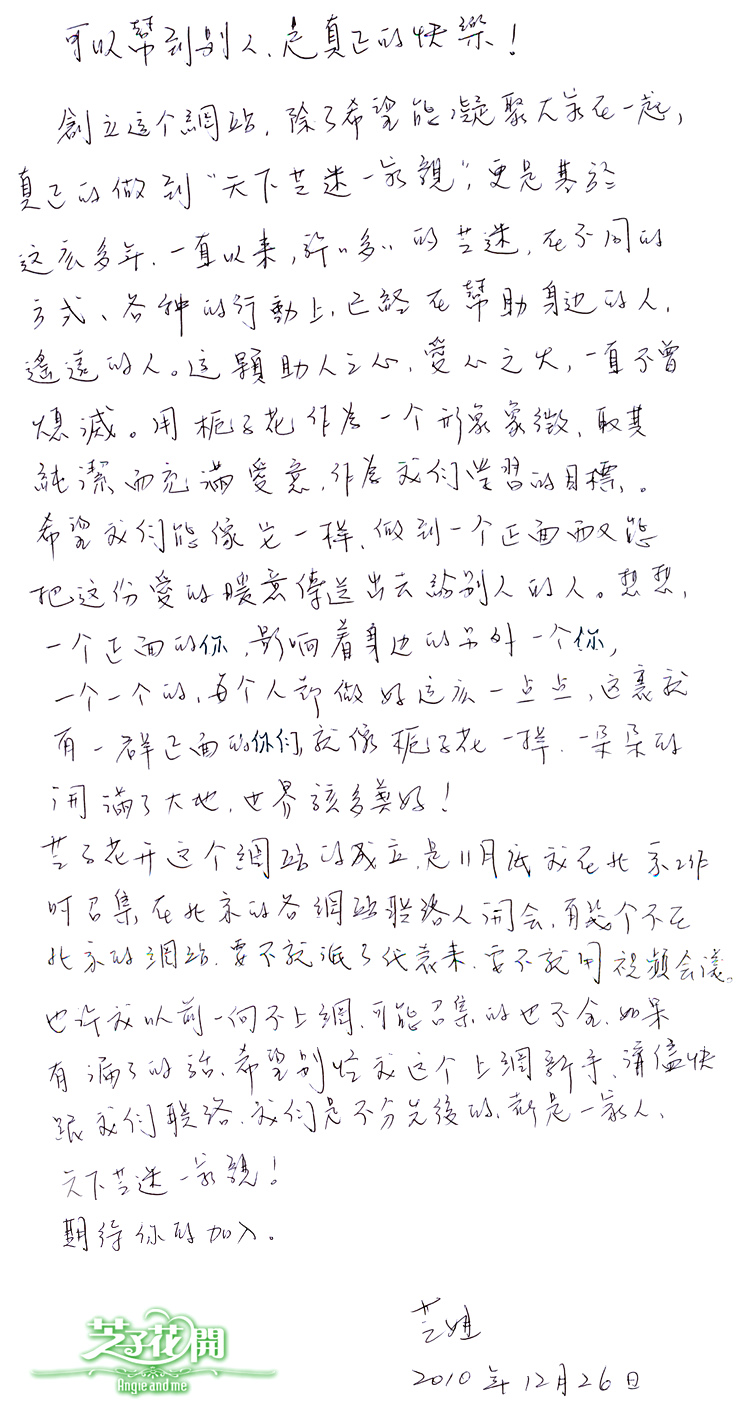 可以幫到別人，是真正的快樂！
創立這个網站，除了希望能凝聚大家在一起，
真正的做到“天下芝迷一家親”，更是基於
這麽多年，一直以来，許許多多的芝迷，在不同的
方式、各种的行動上，已經在幫助身边的人，
遙遠的人。这顆助人之心，愛心之火，一直不曾
熄滅。用梔子花作為一个形象象徵，取其
純潔而充滿愛意，作為我们學習的目標。
希望我们能像它一样，做到一个正面而又能
把这份愛的暖意傳送出去給別人的人。想想，
一个正面的你，影响着身边的另外一个你，
一个一个的，每个人都做好这麽一点点，这裏就
有一群正面的你们，就像梔子花一样，一朵朵的
開滿了大地，世界該多美好！
芝子花开这个網站的成立，是11月底我在北京工作
时召集在北京的各網站联络人開会，有幾个不在
北京的網站，要不就派了代表来，要不就用視頻会議。
也许我以前一向不上網，可能召集的也不全，如果
有漏了的話，希望别怪我这个上網新手，請儘快
跟我们联络，我们是不分先後的，都是一家人，
天下芝迷一家親！
期待你的加入。
芝姐
2010年12月26日
芝子花開
Angie and me